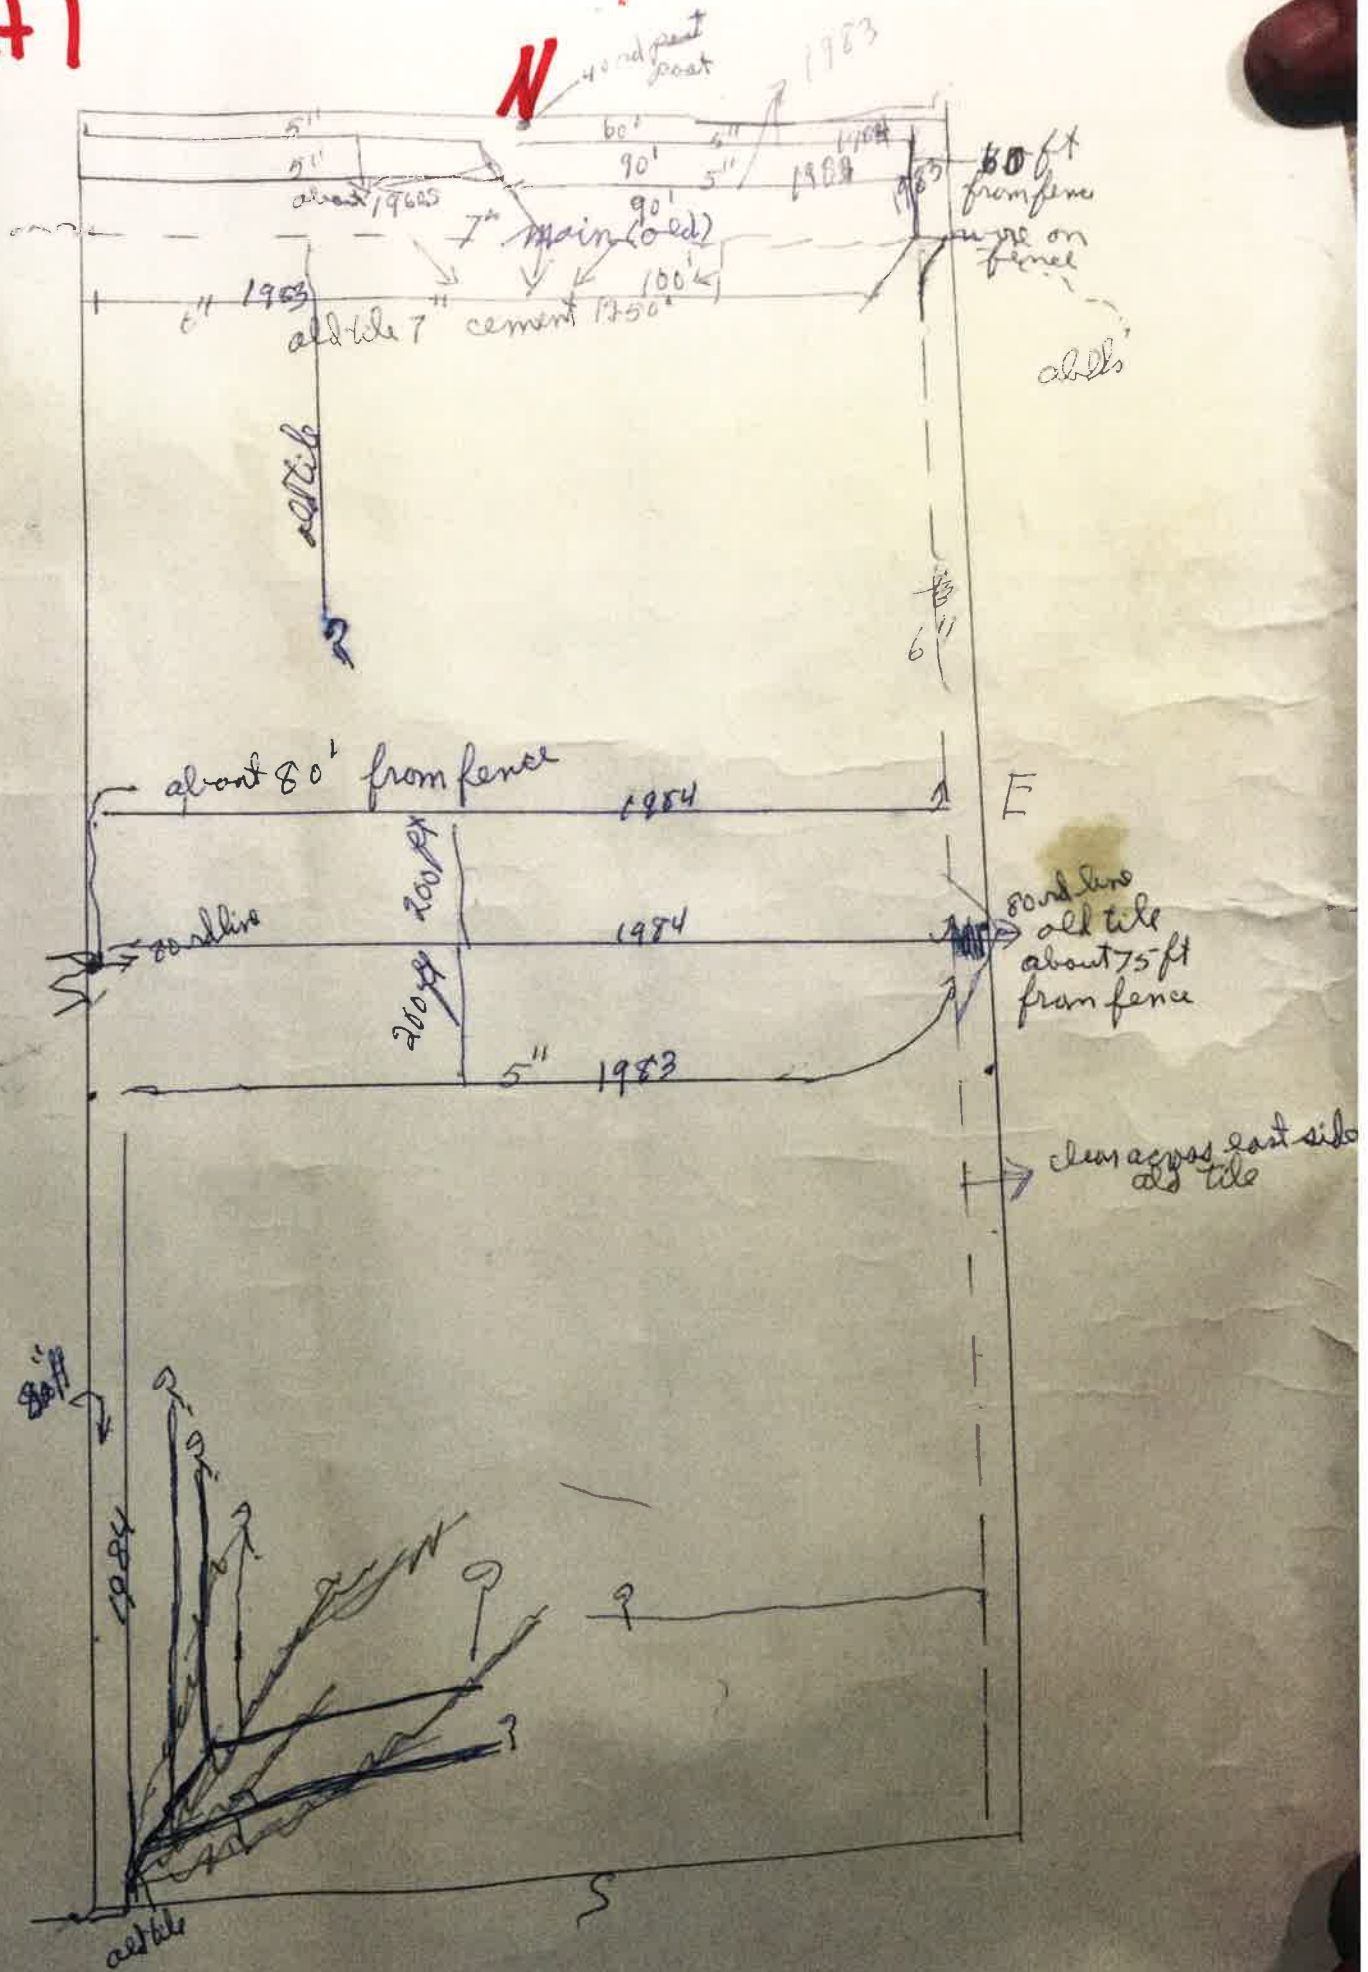 #1
N
40 rd post
1983
5"
60'
5"
1984
5"
90'
5"
1984
1983
60 ft
from fence
wire on
fence
about 1960s
90'
7" main (old)
100'
6" 1983
old tile 7" cement 1250'
old tile
?
6"
about 80' from fence
1984
E
200 ft
80 rd line
1984
80 rd line
old tile
about 75 ft
from fence
200 ft
5" 1983
clear across east side
old tile
1984
?
?
?
?
?
?
S
old tile